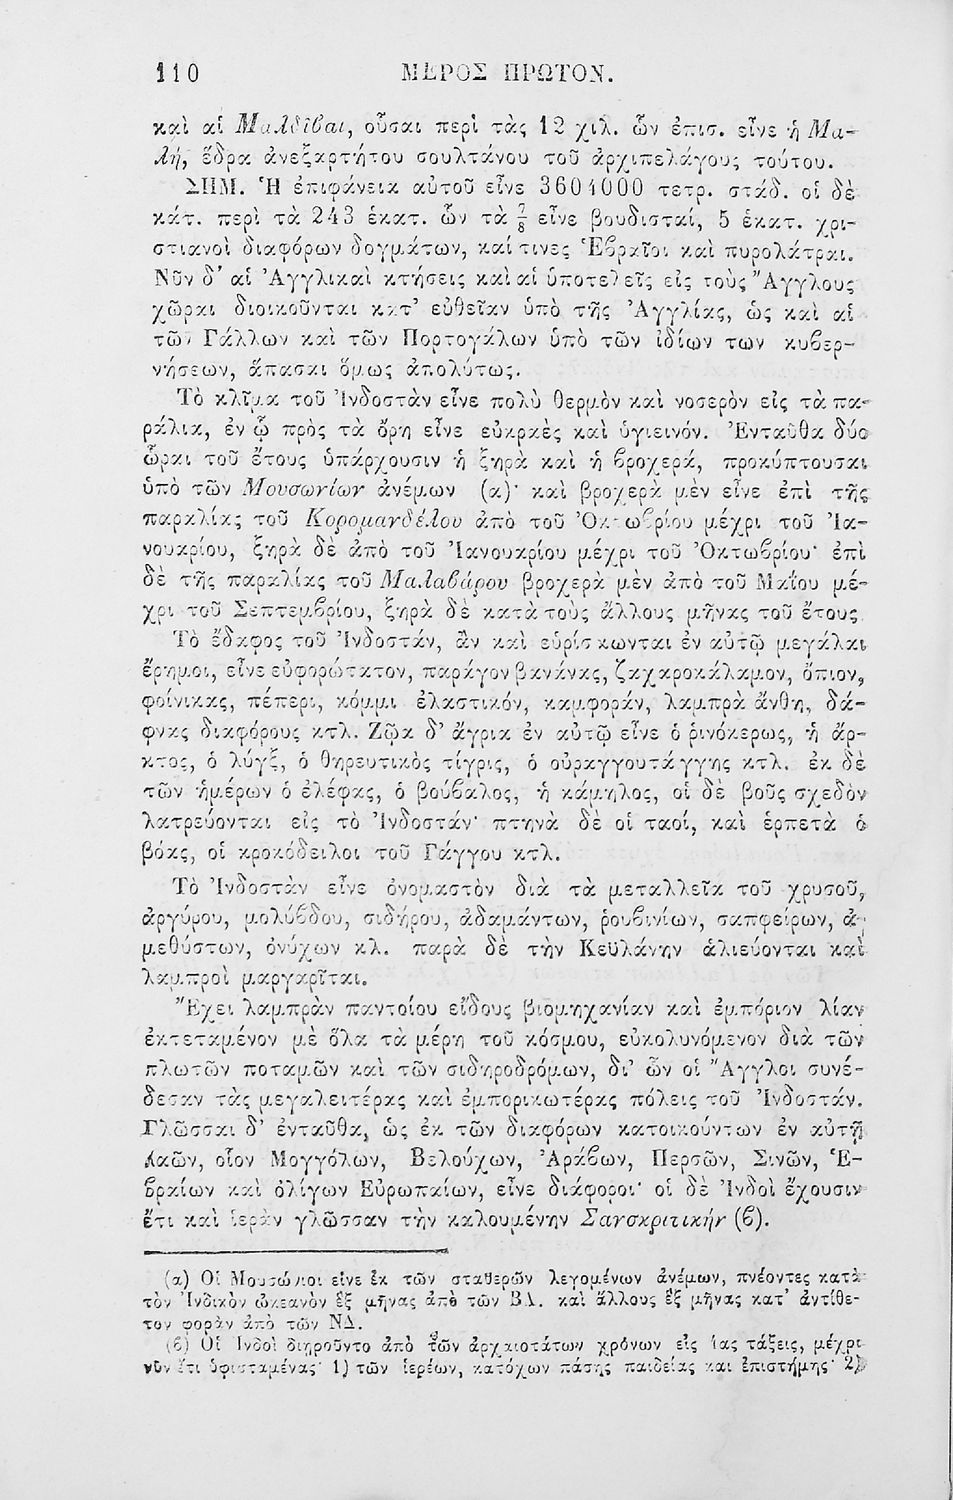 110 ΜΕΡΟΣ ΠΡΩΤΟΝ.
καὶ αἱ Μαλδίβαι, οὖσαι περὶ τὰς 12 χιλ. ὧν ἐπισ. εἶνε ἡ Μα-
λή, ἕδρα ἀνεξαρτήτου σουλτάνου τοῦ ἀρχιπελάγους τούτου.
ΣΗΜ. Ἡ ἐπιφάνεια αὐτοῦ εἶνε 3604000 τετρ. στάδ. οἱ δὲ
κάτ. περὶ τὰ 243 ἑκατ. ὧν τὰ ⅞ εἶνε βουδισταί, 5 ἑκατ. χρι-
στιανοὶ διαφόρων δογμάτων, καί τινες Ἑβραῖοι καὶ πυρολάτραι.
Νῦν δ' αἱ Ἀγγλικαὶ κτήσεις καὶ αἱ ὑποτελεῖς εἰς τοὺς Ἄγγλους
χῶραι διοικοῦνται κατ' εὐθεῖαν ὑπὸ τῆς Ἀγγλίας, ὡς καὶ αἱ
τῶν Γάλλων καὶ τῶν Πορτογάλων ὑπὸ τῶν ἰδίων των κυβερ-
νήσεων, ἅπασαι ὅμως ἀπολύτως.
Τὸ κλῖμα τοῦ Ἰνδοστὰν εἶνε πολὺ θερμὸν καὶ νοσερὸν εἰς τὰ πα-
ράλια, ἐν ᾧ πρὸς τὰ ὄρη εἶνε εὐκραὲς καὶ ὑγιεινόν. Ἐνταῦθα δύο
ὧραι τοῦ ἔτους ὑπάρχουσιν ἡ ξηρὰ καὶ ἡ βροχερά, προκύπτουσαι
ὑπὸ τῶν Μουσωνίων ἀνέμων (α)· καὶ βροχερὰ μὲν εἶνε ἐπὶ τῆς
παραλίας τοῦ Κορομανδέλου ἀπὸ τοῦ Ὀκτωβρίου μέχρι τοῦ Ἰα-
νουαρίου, ξηρὰ δὲ ἀπὸ τοῦ Ἰανουαρίου μέχρι τοῦ Ὀκτωβρίου· ἐπὶ
δὲ τῆς παραλίας τοῦ Μαλαβάρου βροχερὰ μὲν ἀπὸ τοῦ Μαΐου μέ-
χρι τοῦ Σεπτεμβρίου, ξηρὰ δὲ κατὰ τοὺς ἄλλους μῆνας τοῦ ἔτους
Τὸ ἔδαφος τοῦ Ἰνδοστάν, ἂν καὶ εὑρίσκωνται ἐν αὐτῷ μεγάλαι
ἔρημοι, εἶνε εὐφορώτατον, παράγον βανάνας, ζαχαροκάλαμον, ὄπιον,
φοίνικας, πέπερι, κόμμι ἐλαστικόν, καμφοράν, λαμπρὰ ἄνθη, δά-
φνας διαφόρους κτλ. Ζῷα δ' ἄγρια ἐν αὐτῷ εἶνε ὁ ῥινόκερως, ἡ ἄρ-
κτος, ὁ λύγξ, ὁ θηρευτικὸς τίγρις, ὁ οὐραγγουτάγγης κτλ. ἐκ δὲ
τῶν ἡμέρων ὁ ἐλέφας, ὁ βούβαλος, ἡ κάμηλος, οἱ δὲ βοῦς σχεδὸν
λατρεύονται εἰς τὸ Ἰνδοστάν· πτηνὰ δὲ οἱ ταοί, καὶ ἑρπετὰ ὁ
βόας, οἱ κροκόδειλοι τοῦ Γάγγου κτλ.
Τὸ Ἰνδοστὰν εἶνε ὀνομαστὸν διὰ τὰ μεταλλεῖα τοῦ χρυσοῦ,
ἀργύρου, μολύβδου, σιδήρου, ἀδαμάντων, ῥουβινίων, σαπφείρων, ἀ-
μεθύστων, ὀνύχων κλ. παρὰ δὲ τὴν Κεϋλάνην ἁλιεύονται καὶ
λαμπροὶ μαργαρῖται.
Ἔχει λαμπρὰν παντοίου εἴδους βιομηχανίαν καὶ ἐμπόριον λίαν
ἐκτεταμένον μὲ ὅλα τὰ μέρη τοῦ κόσμου, εὐκολυνόμενον διὰ τῶν
πλωτῶν ποταμῶν καὶ τῶν σιδηροδρόμων, δι' ὧν οἱ Ἄγγλοι συνέ-
δεσαν τὰς μεγαλειτέρας καὶ ἐμπορικωτέρας πόλεις τοῦ Ἰνδοστάν.
Γλῶσσαι δ' ἐνταῦθα, ὡς ἐκ τῶν διαφόρων κατοικούντων ἐν αὐτῇ
λαῶν, οἷον Μογγόλων, Βελούχων, Ἀράβων, Περσῶν, Σινῶν, Ἑ-
βραίων καὶ ὀλίγων Εὐρωπαίων, εἶνε διάφοροι· οἱ δὲ Ἰνδοὶ ἔχουσιν
ἔτι καὶ ἱερὰν γλῶσσαν τὴν καλουμένην Σανσκριτικήν (β).
(α) Οἱ Μουσώνιοι εἶνε ἐκ τῶν σταθερῶν λεγομένων ἀνέμων, πνέοντες κατὰ
τὸν Ἰνδικὸν ὠκεανὸν ἓξ μῆνας ἀπὸ τῶν ΒΑ. καὶ ἄλλους ἓξ μῆνας κατ' ἀντίθε-
τον φορὰν ἀπὸ τῶν ΝΔ.
(β) Οἱ Ἰνδοὶ διῃροῦντο ἀπὸ τῶν ἀρχαιοτάτων χρόνων εἰς τάξεις, μέχρι
νῦν ἔτι ὑφισταμένας· 1) τῶν ἱερέων, κατόχων πάσης παιδείας καὶ ἐπιστήμης· 2)